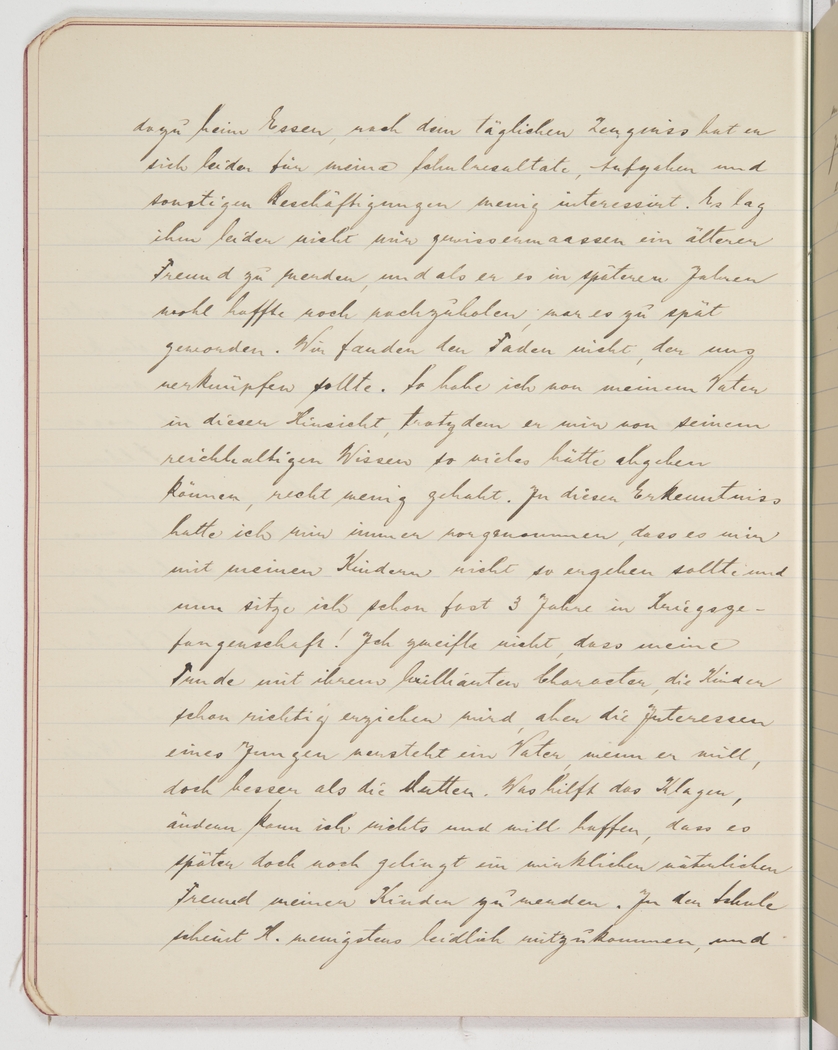 dazu beim Essen, nach dem täglichen Zeugniss hat er
sich leider für meine Schulresultate, Aufgaben und
sonstigen Beschäftigungen wenig interessirt. Es lag
ihm leider nicht mir gewissermaassen ein älterer
Freund zu werden, und als er es in späteren Jahren
wohl hoffte noch nachzuholen, war es zu spät
geworden. Wir fanden den Faden nicht, der uns
verknüpfen sollte. So habe ich von meinem Vater
in dieser Hinsicht, trotzdem er mir von seinem
reichhaltigen Wissen so vieles hätte abgeben
können, recht wenig gehabt. In dieser Erkenntniss
hatte ich mir immer vorgenommen, dass es mir
mit meinen Kindern nicht so ergehen sollte und
nun sitze ich schon fast 3 Jahre in Kriegsge-
fangenschaft! Ich zweifle nicht, dass meine
Trude mit ihrem brillianten Character, die Kinder
schon richtig erziehen wird, aber die Interessen
eines Jungen versteht ein Vater, wenn er will,
doch besser als die Mutter. Was hilft das Klagen,
ändern kann ich nichts und will hoffen, dass es
später doch noch gelingt ein wirklicher väterlicher
Freund meiner Kinder zu werden. In der Schule
scheint H. wenigstens leidlich mitzukommen, und